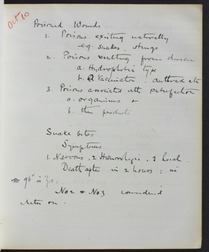 Oct 10
Poisoned Wounds
1. Poisons existing naturally
e.g. snakes stings
2. Poisons resulting from disease
a. Hydrophobia type
b. Vaccination
3. Poisons associated with putrefaction
a. organisms &
b. the products
Snake bites
Symptoms
1. Nervous. 2 Haemorrhagic. 3 local.
Death after in 2 hours: in
No 2 & No 3 considered
later on.